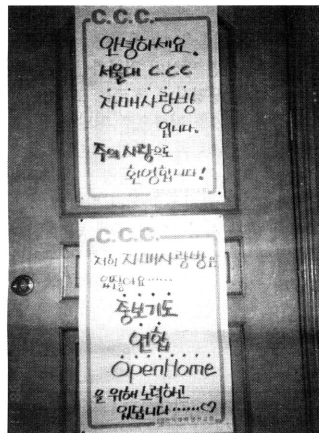 C.C.C.
안녕하세요.
서울대 C.C.C
자매사랑방
입니다.
주의 사랑으로
환영합니다!
C.C.C.
저희 자매사랑방은
있잖아요......
중보기도
연합
OpenHome
을 위해 노력하고
있답니다......♡